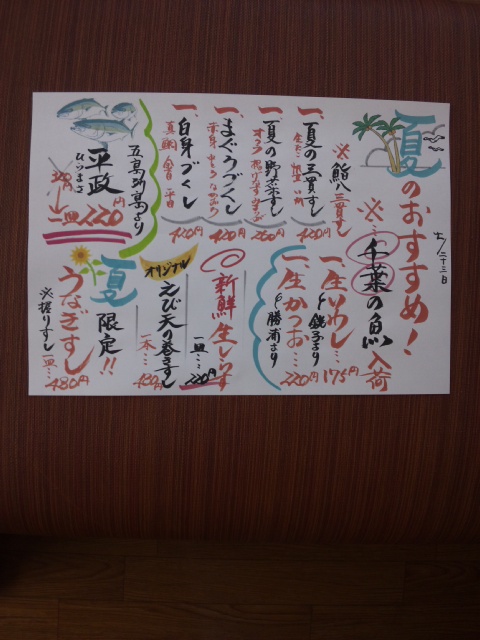 夏のおすすめ!
七/二十三日
※…千葉の魚入荷
※鮨八三貫すし
一、夏の三貫すし
420円
一、夏の野菜すし
260円
一、まぐろづくし
420円
一、白身づくし
420円
五島列島より
平政
ひらまさ
一皿220円
一、生いわし…
銚子より
175円
一、生かつお…
勝浦より
220円
新鮮生しらす
一皿…220円
オリジナル
えび天の巻きすし
一本…430円
夏
限定!!
うなぎすし
※握りすし一皿…480円